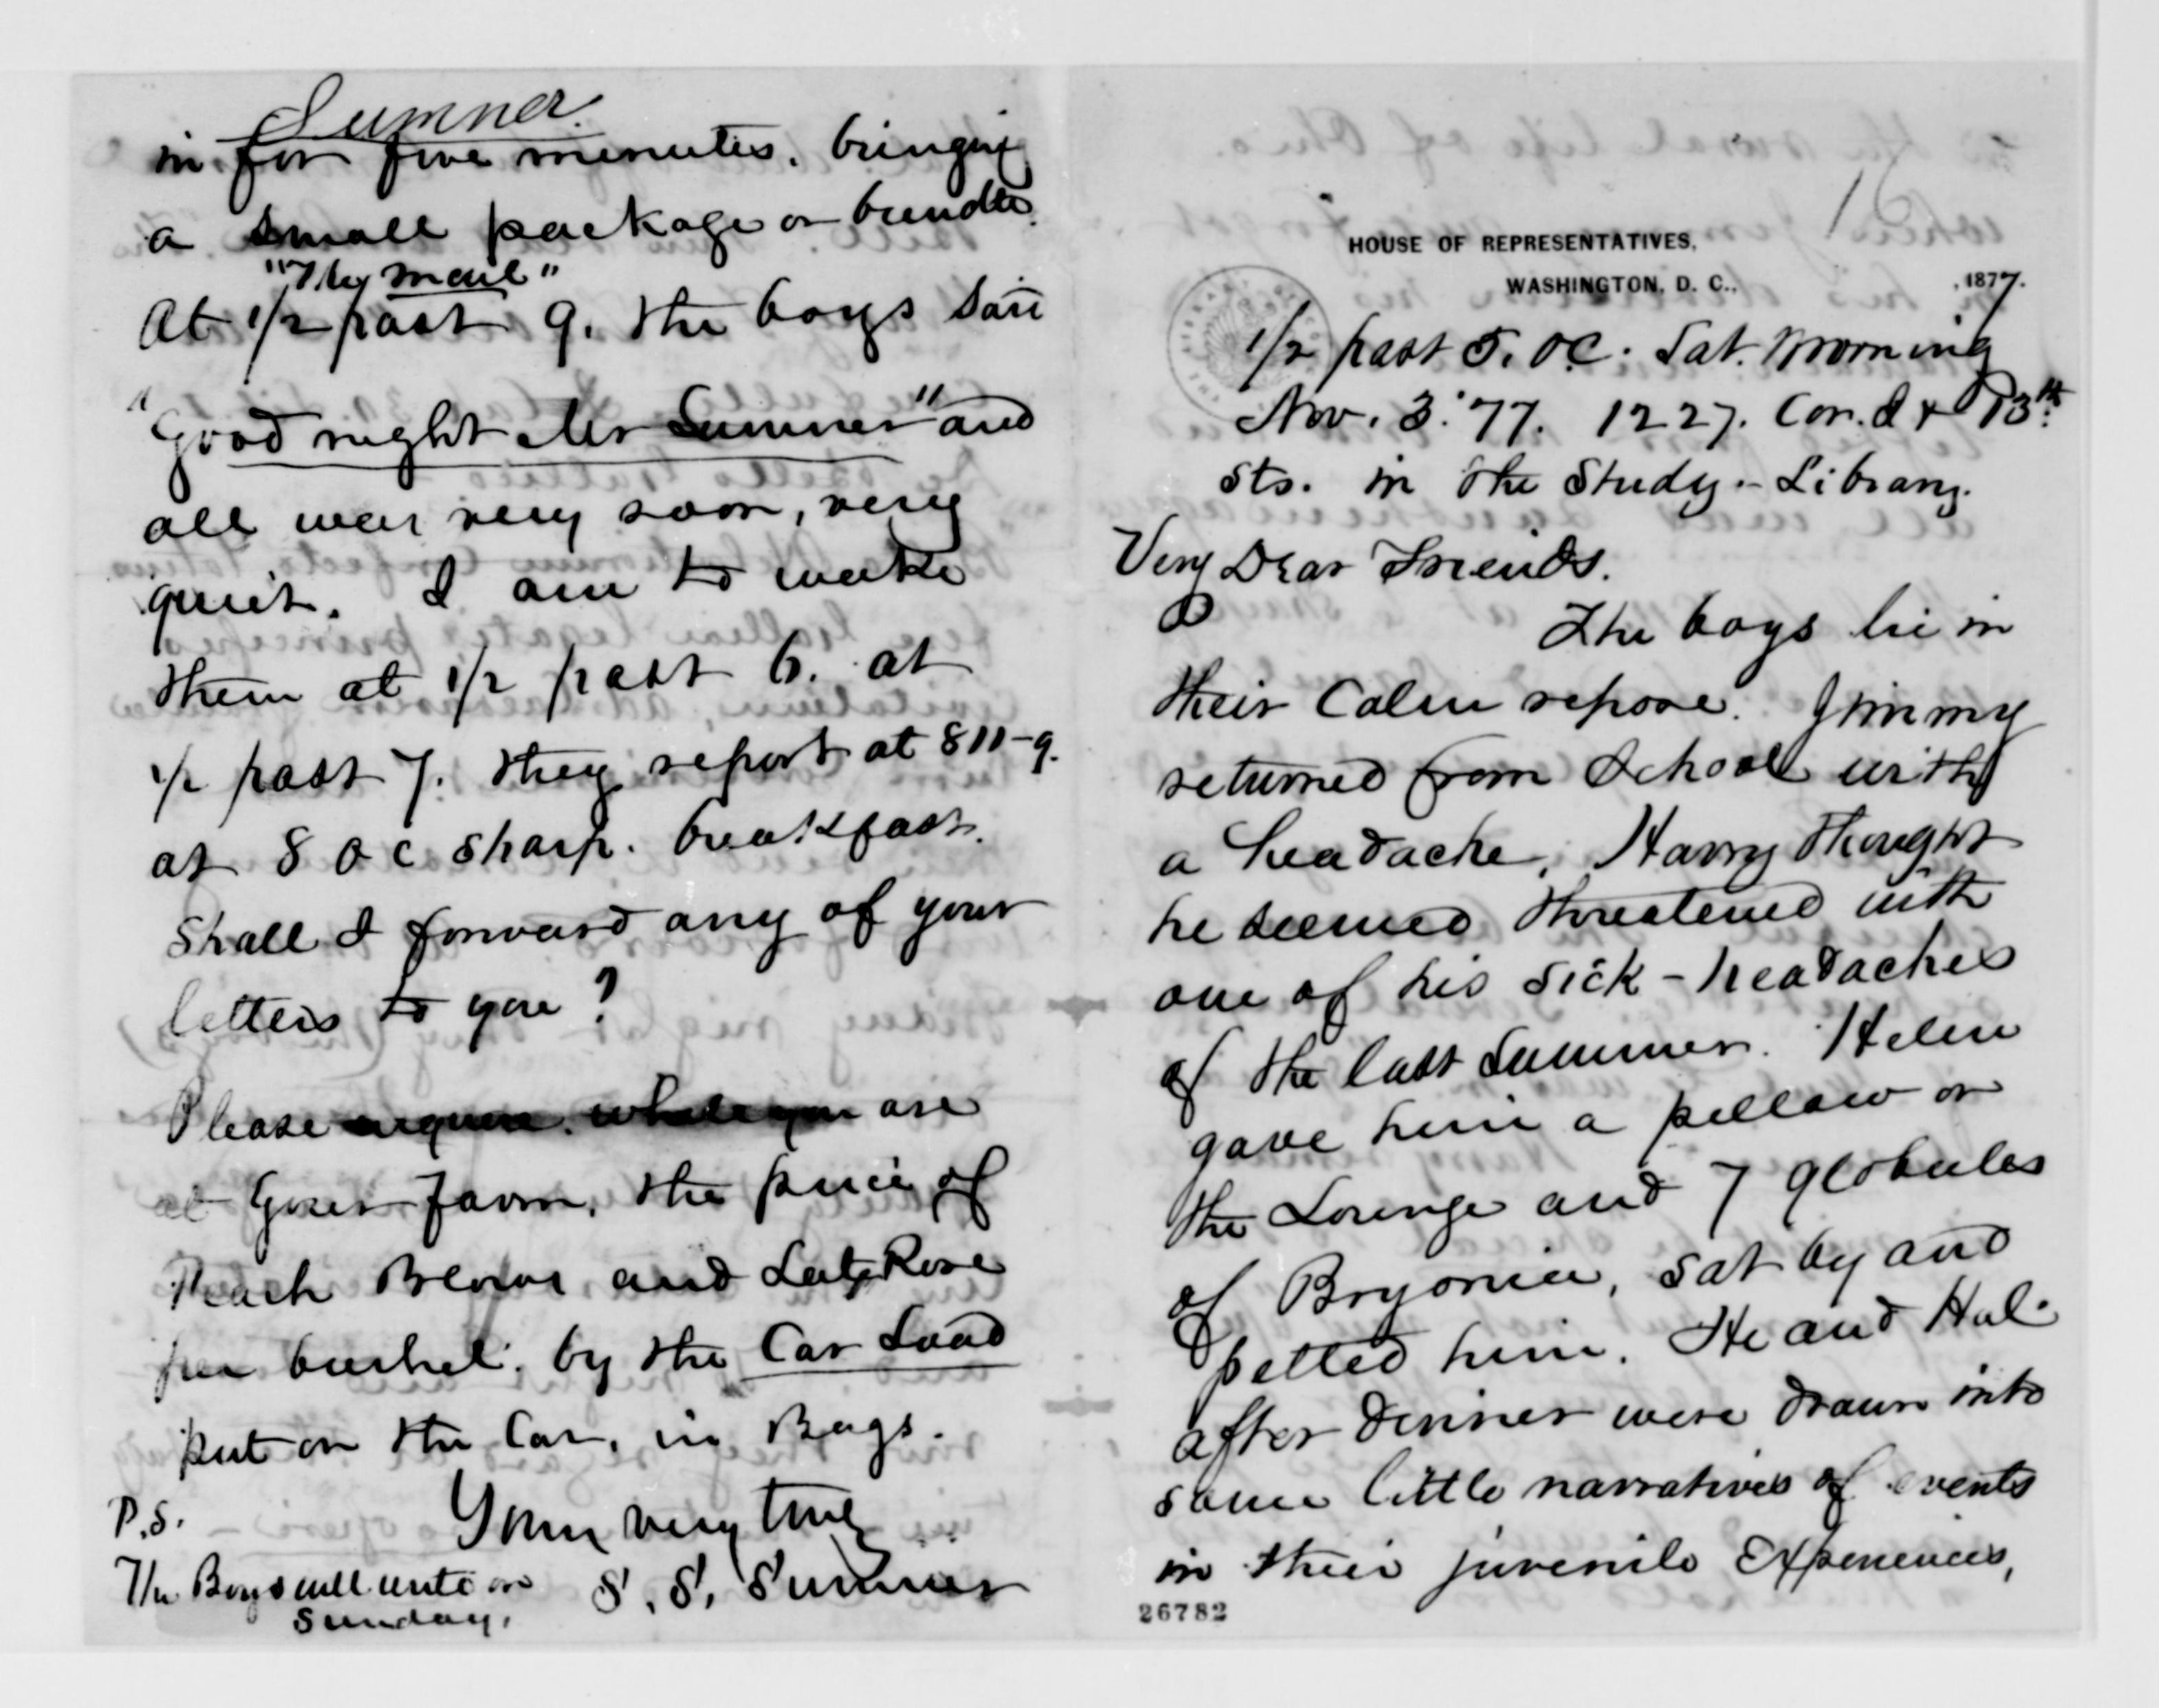 Sumner.
in for five minutes, bringing
a small package or bundle.
"The mail"
At 1/2 past 9. the boys said
"Good night Mr Sumner" and
all was very soon, very
quiet. I am to wake
them at 1/2 past 6. at
1/2 past 7. they report at 8
at 8 o c sharp. breakfast.
Shall I forward any of your
letters to you?
Please are
at your farm, the price of
Peach Blow and Late Rose
per bushel, by the Car Load
put on the Car, in Bags.
Yours very truly
S. S. Sumner
P.S.
The Boys will write on
Sunday.
HOUSE OF REPRESENTATIVES,
WASHINGTON, D. C., , 1877.
1/2 past 5. OC. Sat. Morning
Nov. 3. '77. 1227. Cor. I & 13th.
Sts. in the Study - Library.
Very Dear Friends.
The boys lie in
their Calm repose. Jimmy
returned from School with
a headache, Harry thought
he seemed threatened with
one of his sick-headaches
of the last Summer. Helen
gave him a pillow on
the Lounge and 7 globules
of Bryonia, sat by and
petted him. He and Hal.
after dinner were drawn into
some little narratives of events
in their juvenile Experiences,
26782